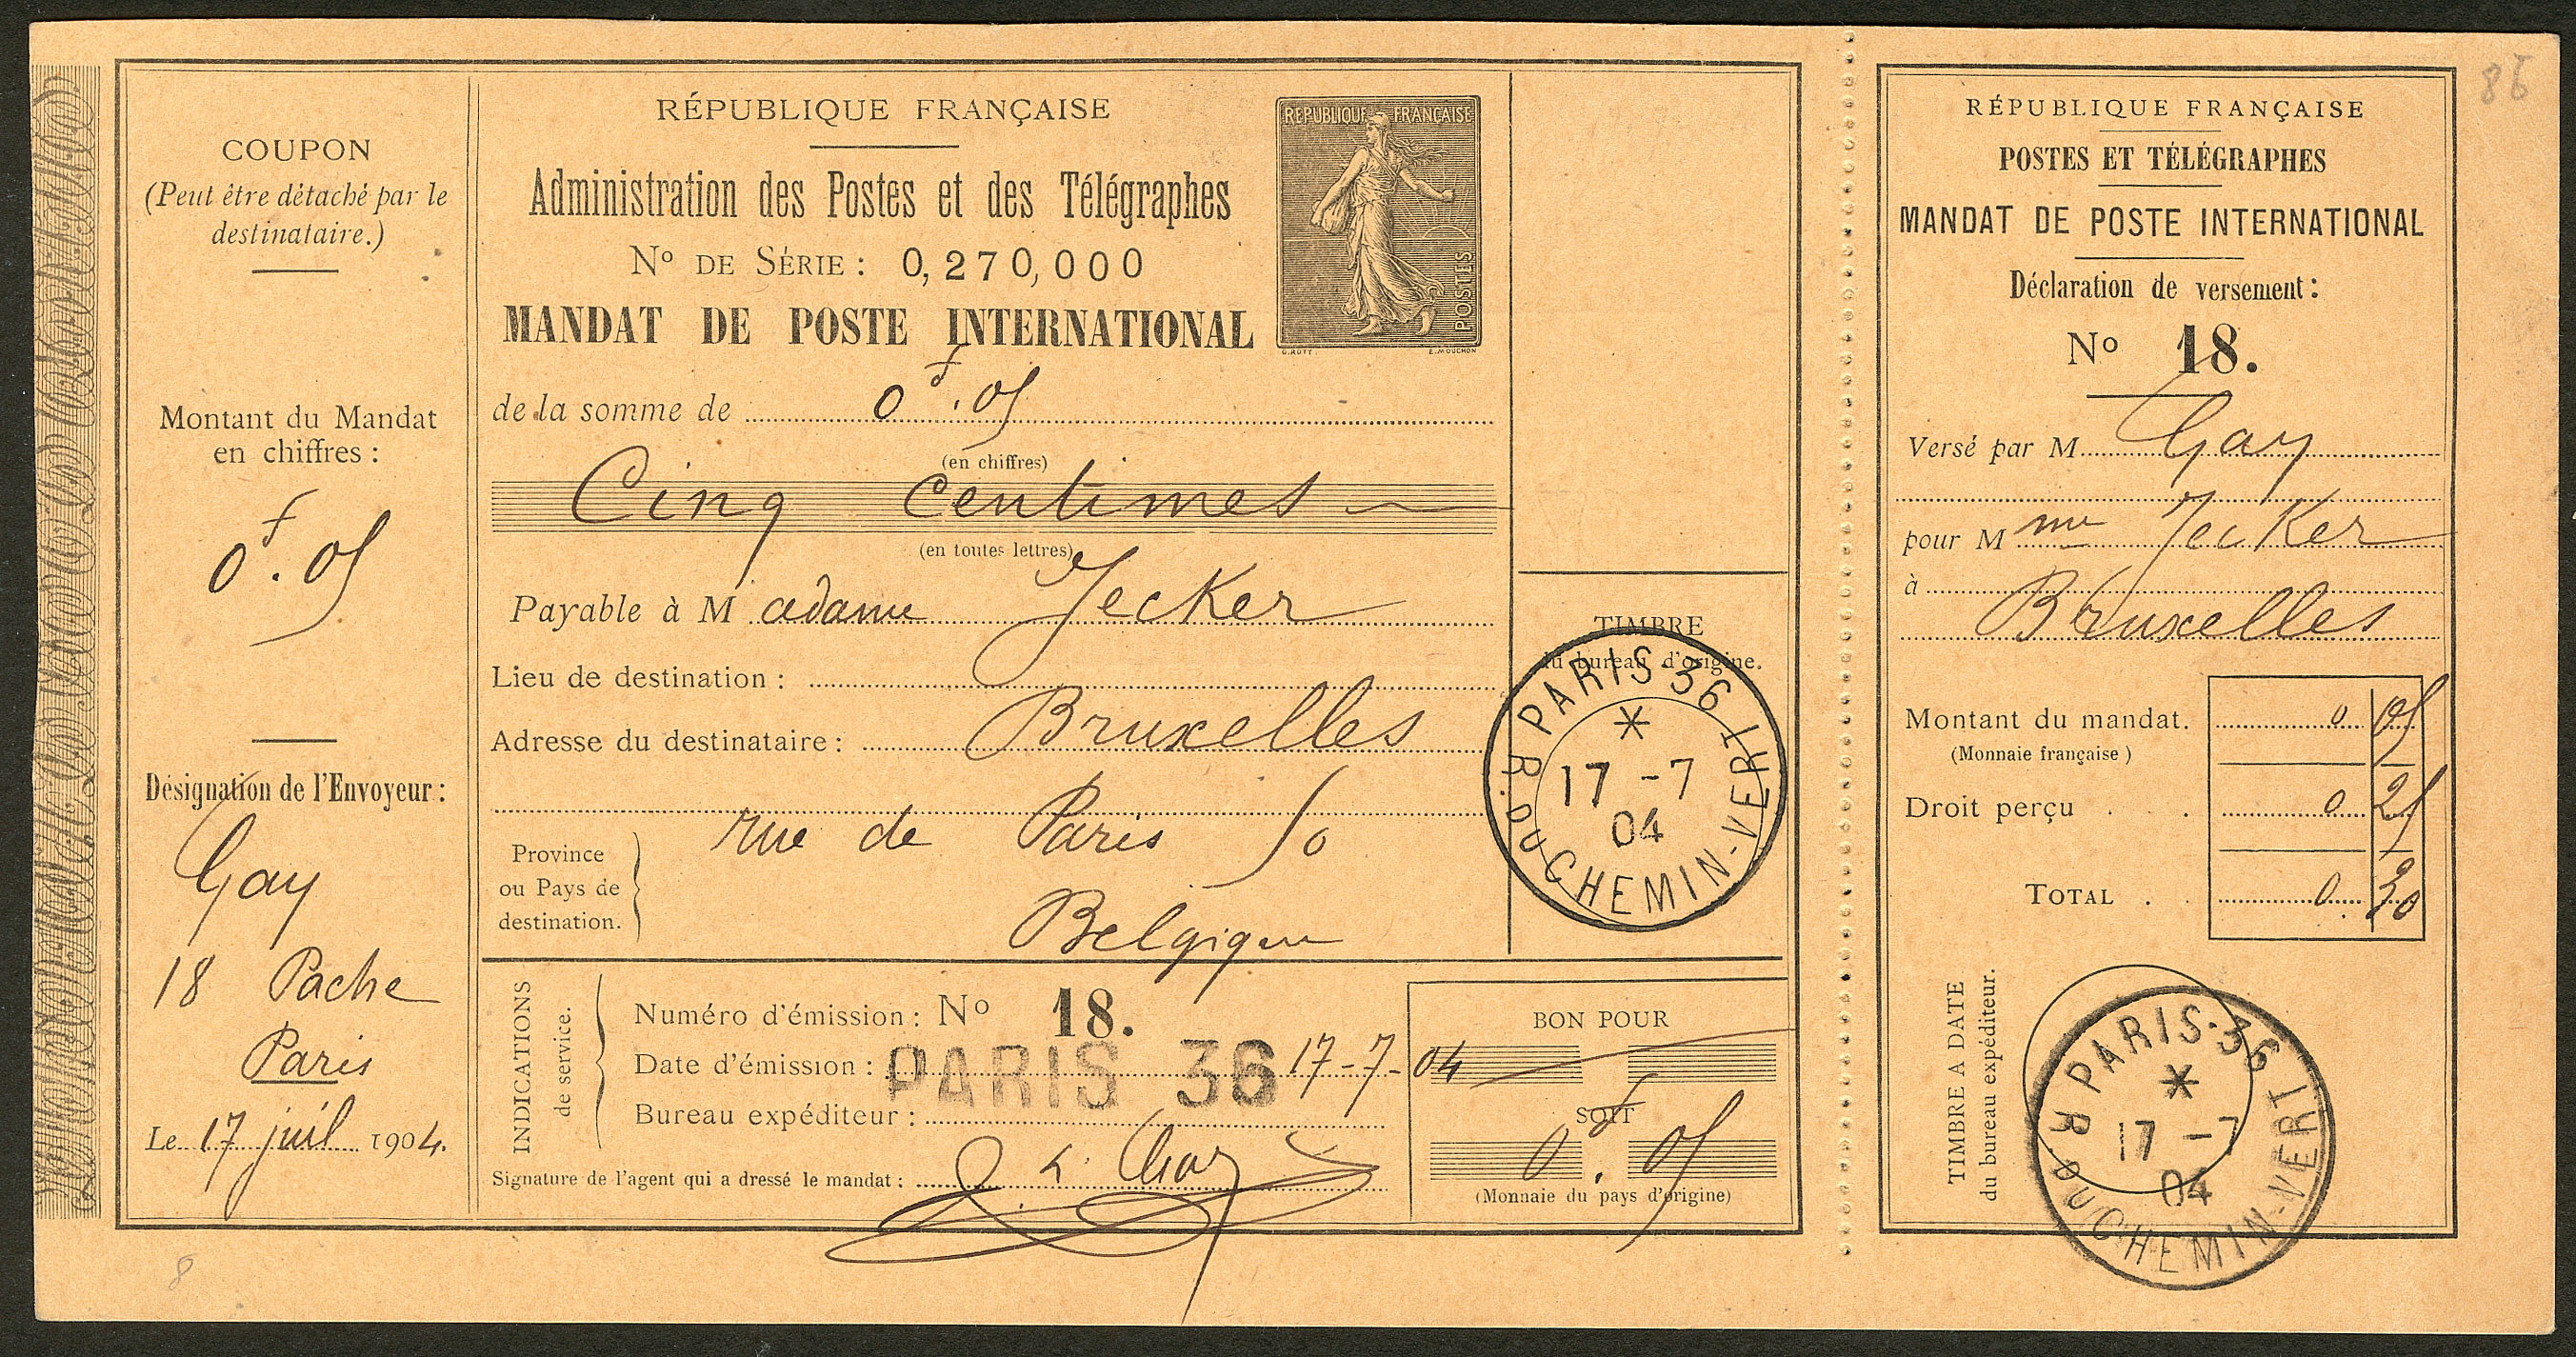 COUPON
(Peut être détaché par le
destinataire.)
Montant du Mandat
en chiffres :
0f.05
Désignation de l'Envoyeur :
Gay
18 Pache
Paris
Le 17 juil 1904.
8
RÉPUBLIQUE FRANÇAISE
Administration des Postes et des Télégraphes
No DE SÉRIE : 0,270,000
MANDAT DE POSTE INTERNATIONAL
REPUBLIQUE FRANÇAISE
POSTES
O. ROTY. E. MOUCHON
de la somme de 0f.05
(en chiffres)
Cinq Centimes
(en toutes lettres)
Payable à Madame Jecker
Lieu de destination :
Adresse du destinataire : Bruxelles
rue de Paris 50
Province
ou Pays de
destination.
Belgique
TIMBRE
du bureau d'origine.
PARIS-36
*
17 -7
04
R. DU CHEMIN-VERT
INDICATIONS
de service.
Numéro d'émission : No 18.
Date d'émission : 17-7-04
PARIS 36
Bureau expéditeur :
Signature de l'agent qui a dressé le mandat :
BON POUR
SOIT
0f.05
(Monnaie du pays d'origine)
86
RÉPUBLIQUE FRANÇAISE
POSTES ET TÉLÉGRAPHES
MANDAT DE POSTE INTERNATIONAL
Déclaration de versement :
No 18.
Versé par M Gay
pour Mme Jecker
à
Bruxelles
Montant du mandat. 0 05
(Monnaie française)
Droit perçu . . 0 25
TOTAL . . 0. 30
TIMBRE A DATE
du bureau expéditeur.
PARIS-36
*
17 -7
04
R. DU CHEMIN-VERT